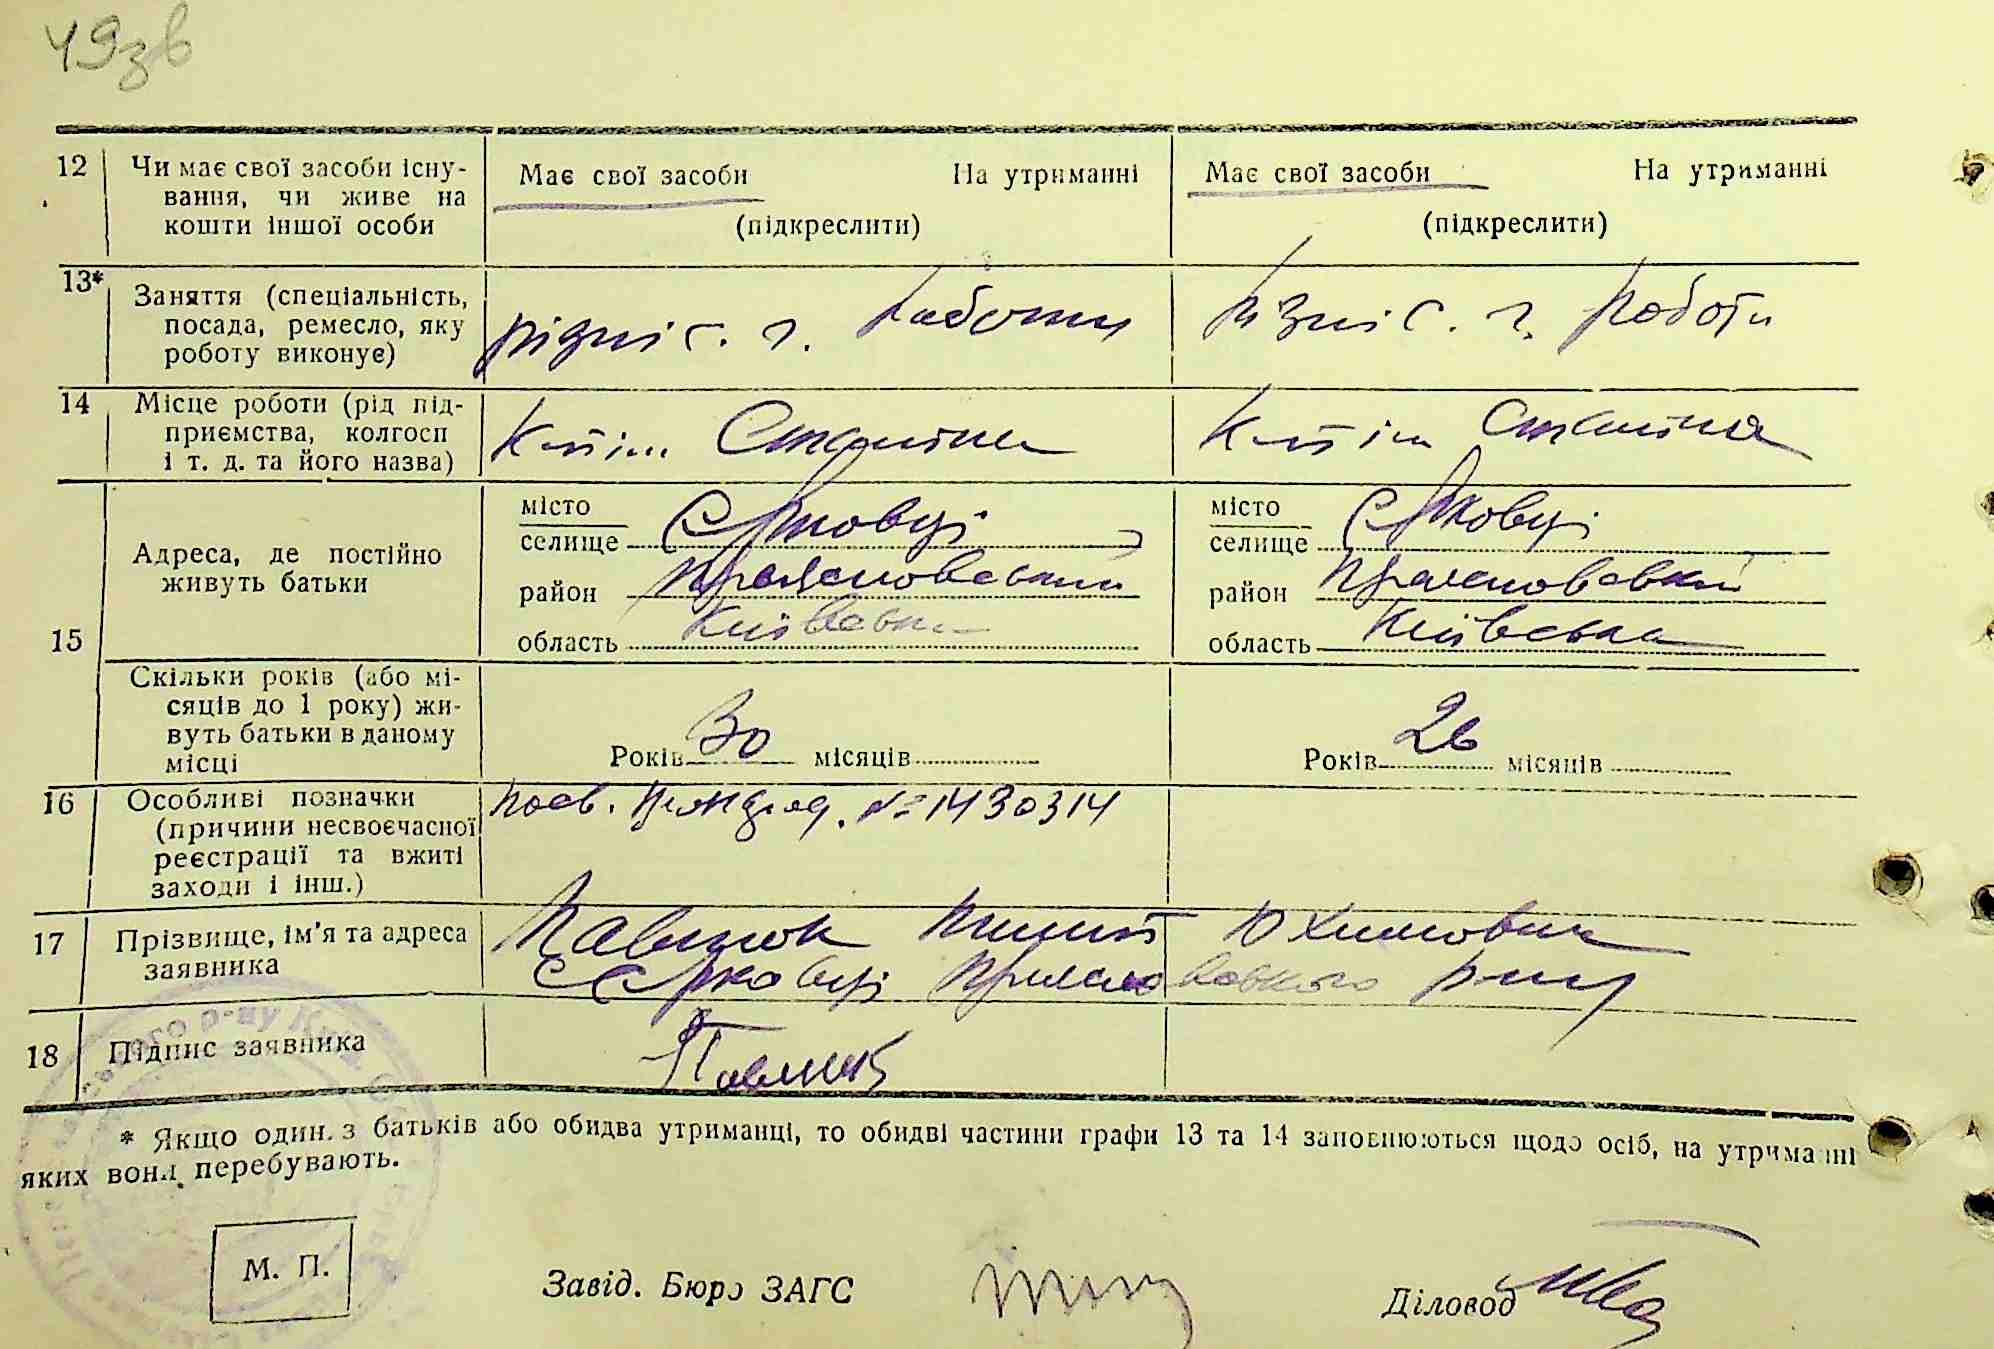 49зв
12 Чи має свої засоби існу- Має свої засоби На утриманні Має свої засоби На утриманні
вання, чи живе на
кошти іншої особи (підкреслити) (підкреслити)
13* Заняття (спеціальність,
посада, ремесло, яку різні с. г. роботи різні с. г. роботи
роботу виконує)
14 Місце роботи (рід під-
приємства, колгосп К-п ім. Сталіна К-п ім Сталіна
і т. д. та його назва)
місто місто
селище Єрковці селище Єрковці
Адреса, де постійно
живуть батьки район район
15 область Київська область Київська
Скільки років (або мі-
сяців до 1 року) жи-
вуть батьки в даному
місці Років 30 місяців Років 26 місяців
16 Особливі позначки № 1430314
(причини несвоєчасної
реєстрації та вжиті
заходи і інш.)
17 Прізвище, ім'я та адреса Павлюк Юхимович
заявника с Єрковці р-ну
18 Підпис заявника Павлюк
* Якщо один з батьків або обидва утриманці, то обидві частини графи 13 та 14 заповнюються щодо осіб, на утриманні
яких вони перебувають.
М. П.
Завід. Бюро ЗАГС Діловод